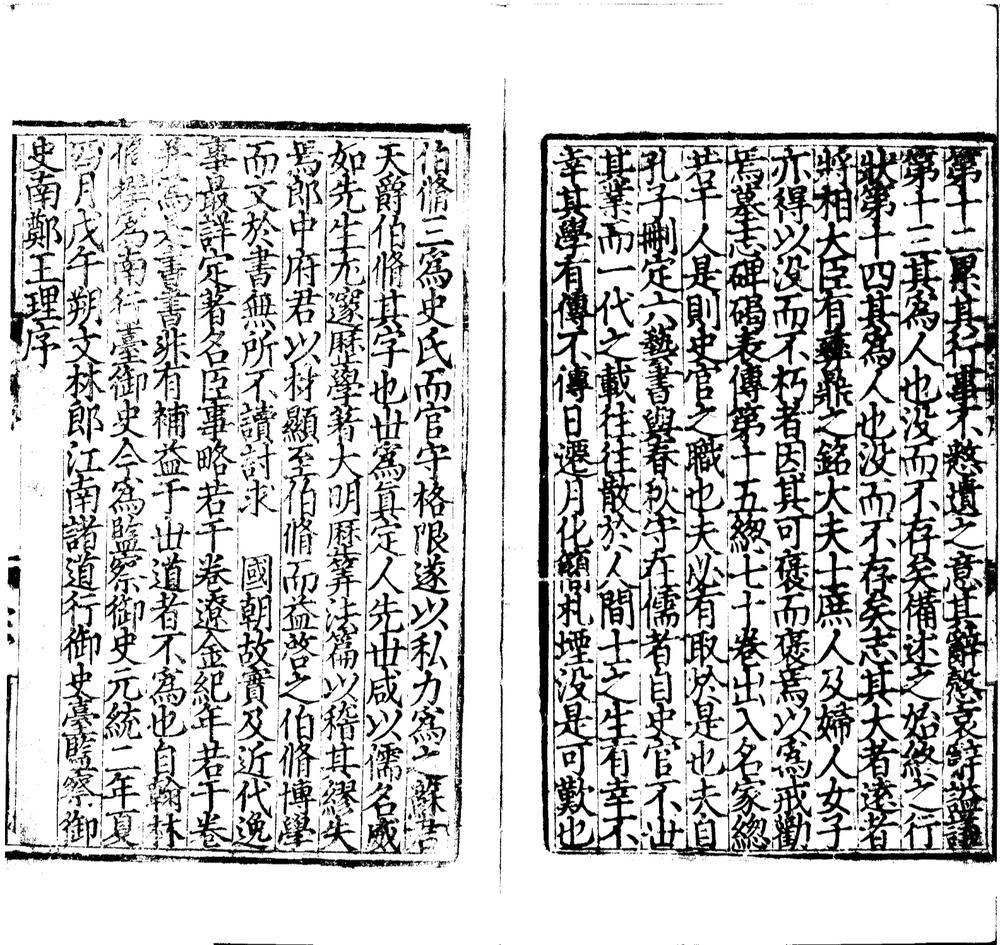 第十二累其行事不憗遺之意其辭慤哀誄謚議
第十三其爲人也没而不存矣備述之始終之行
狀第十四其爲人也没而不存矣志其大者遠者
將相大臣有彝鼎之銘大夫士庶人及婦人女子
亦得以没而不朽者因其可褒而褒焉以爲戒勸
焉墓志碑碣表傳第十五緫七十卷出入名家緫
若干人是則史官之職也夫必有取於是也夫自
孔子刪定六藝書與春秋守在儒者自史官不世
其業而一代之載往往散於人間士之生有幸不
幸其學有傳不傳日遷月化簡札堙没是可歎也
伯脩三爲史氏而官守格限遂以私力爲之蘇
天爵伯脩其字也世爲眞定人先世咸以儒名威
如先生尤邃曆學著大明曆筭法篇以稽其繆失
焉郎中府君以材顯至伯脩而益啓之伯脩博學
而文於書無所不讀討求　國朝故實及近代逸
事最詳定著名臣事略若干卷遼金紀年若干卷
并爲是書書非有補益于世道者不爲也自翰林
脩撰爲南行臺御史今爲監察御史元統二年夏
四月戊午朔文林郎江南諸道行御史臺監察御
史南鄭王理序